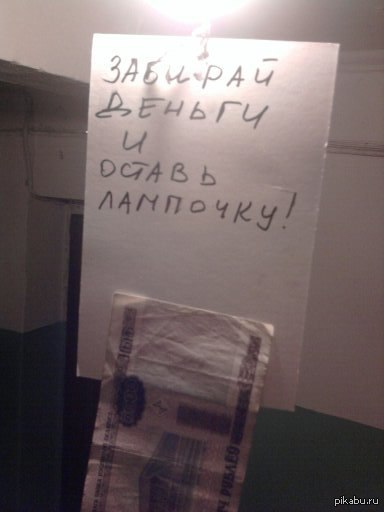 ЗАБИРАЙ
ДЕНЬГИ
И
ОСТАВЬ
ЛАМПОЧКУ!
РУБЛЕЙ
pikabu.ru